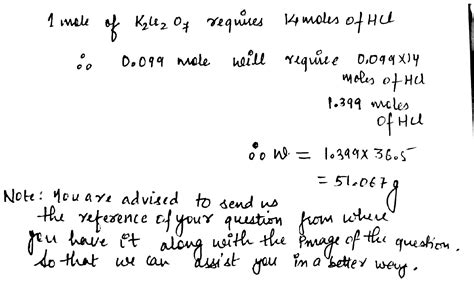 1 mole of K2Cr2O7 requires 14 moles of HCl
∴ 0.099 mole will require 0.099×14
moles of HCl
1.399 moles
of HCl
∴ W = 1.399×36.5
= 51.067 g
Note: You are advised to send us
the reference of your question from where
you have it along with the image of the question.
So that we can assist you in a better way.